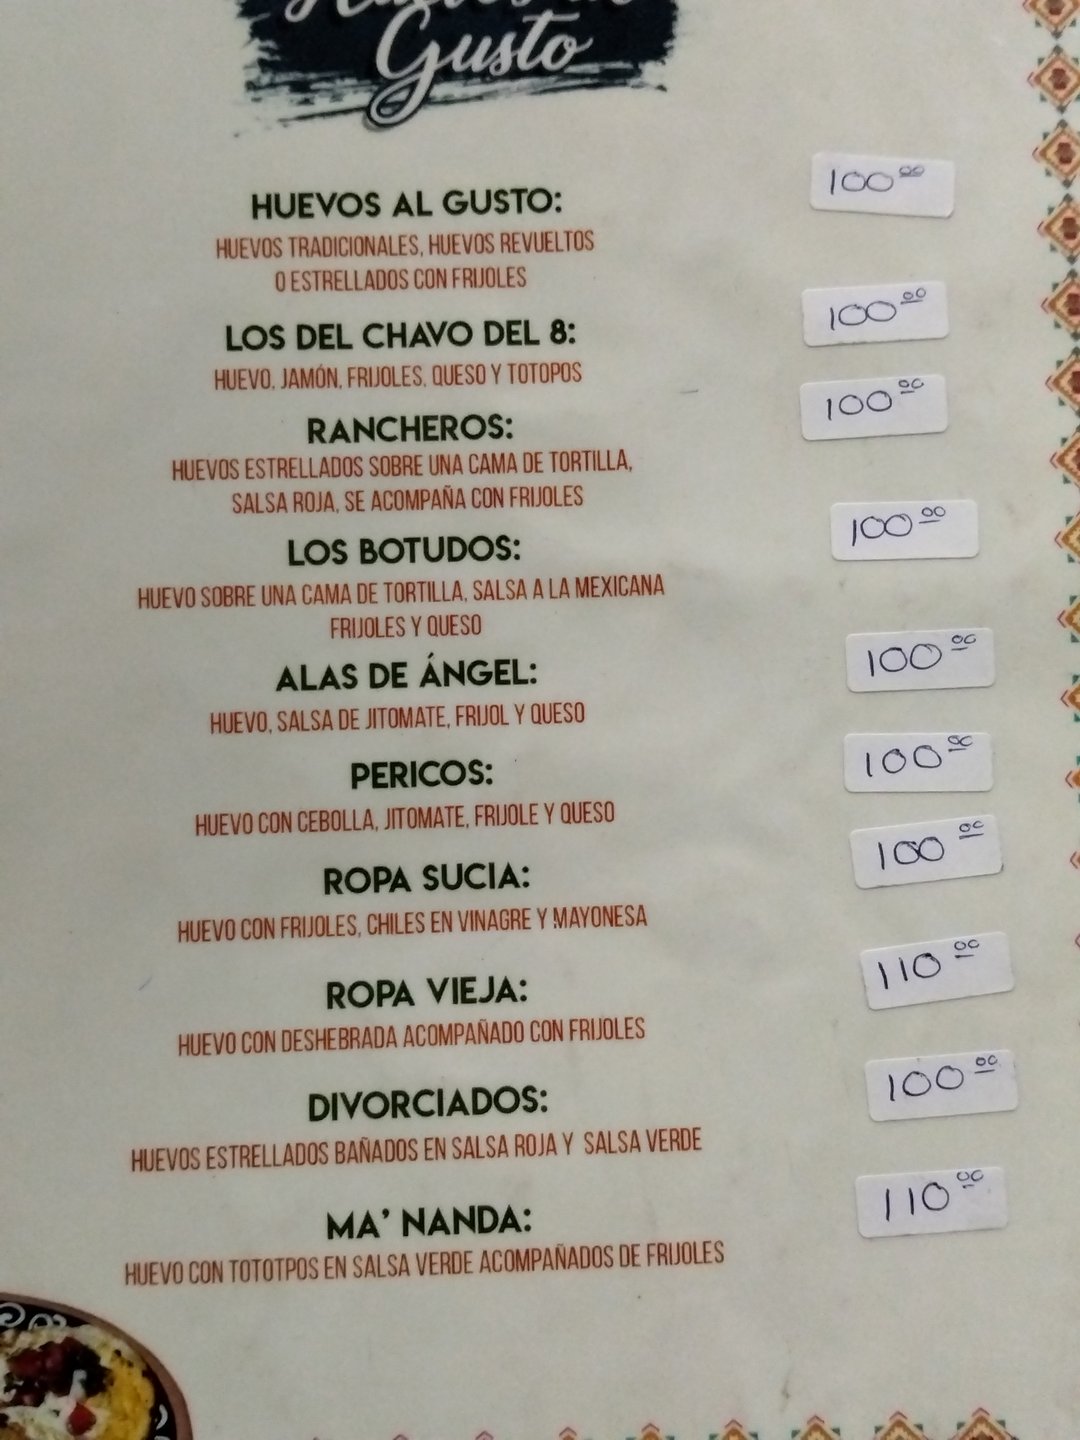 Gusto
HUEVOS AL GUSTO: 100⁰⁰
HUEVOS TRADICIONALES, HUEVOS REVUELTOS
O ESTRELLADOS CON FRIJOLES
LOS DEL CHAVO DEL 8: 100⁰⁰
HUEVO, JAMÓN, FRIJOLES, QUESO Y TOTOPOS
RANCHEROS: 100⁰⁰
HUEVOS ESTRELLADOS SOBRE UNA CAMA DE TORTILLA,
SALSA ROJA, SE ACOMPAÑA CON FRIJOLES
LOS BOTUDOS: 100⁰⁰
HUEVO SOBRE UNA CAMA DE TORTILLA, SALSA A LA MEXICANA
FRIJOLES Y QUESO
ALAS DE ÁNGEL: 100⁰⁰
HUEVO, SALSA DE JITOMATE, FRIJOL Y QUESO
PERICOS: 100⁰⁰
HUEVO CON CEBOLLA, JITOMATE, FRIJOLE Y QUESO
ROPA SUCIA: 100⁰⁰
HUEVO CON FRIJOLES, CHILES EN VINAGRE Y MAYONESA
ROPA VIEJA: 110⁰⁰
HUEVO CON DESHEBRADA ACOMPAÑADO CON FRIJOLES
DIVORCIADOS: 100⁰⁰
HUEVOS ESTRELLADOS BAÑADOS EN SALSA ROJA Y SALSA VERDE
MA' NANDA: 110⁰⁰
HUEVO CON TOTOTPOS EN SALSA VERDE ACOMPAÑADOS DE FRIJOLES